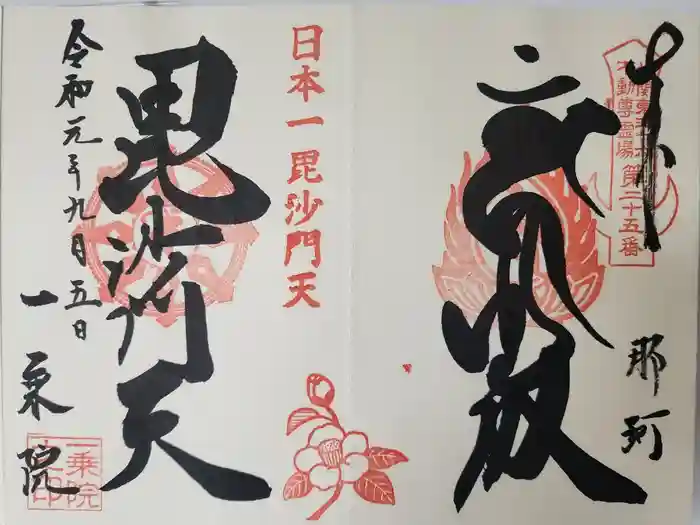 奉
北関東三十六
不動尊霊場 第二十五番
那珂
日本一毘沙門天
毘沙門天
令和元年九月五日
一乗院
一乗院
之印